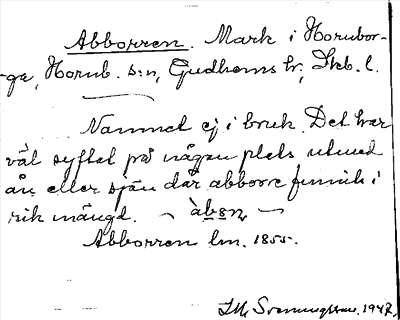 Abborren. Mark i Hornbor-
ga, Hornb. s:n, Gudhems hr, Skb. l.
Namnet ej i bruk. Det har
väl syftat på någon plats utmed
ån eller sjön där abborre funnits i
rik mängd. ~ àbɐn ~
Abborren lm. 1855.
1947.